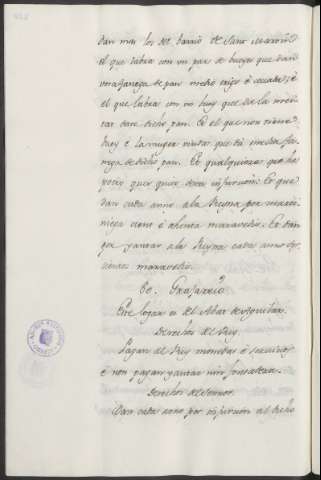 dan mas los del barrio de Sant
el que labra con un par de bueyes que dan
una fanega de pan medio trigo é cevada; é
el que labra con un buy que dá la mey-
tat deste dicho pan. Et el que non oviere
buey é la muger viuda que dá media fa-
nega de dicho pan. Et qualquiera que
quier que sea infurción. Et que
dan cada año á la Reyna por marti-
niega ciento é ochenta maravedis. Et dan
por yantar á la Reyna cada año
cientos maravedis.
Este logar es del Abat de Aguilar.
Derechos del Rey.
Pagan al Rey monedas é servicios
é non pagan yantar nin fonsadera.
Derechos del Sennor.
Dan cada anno por infurción al dicho